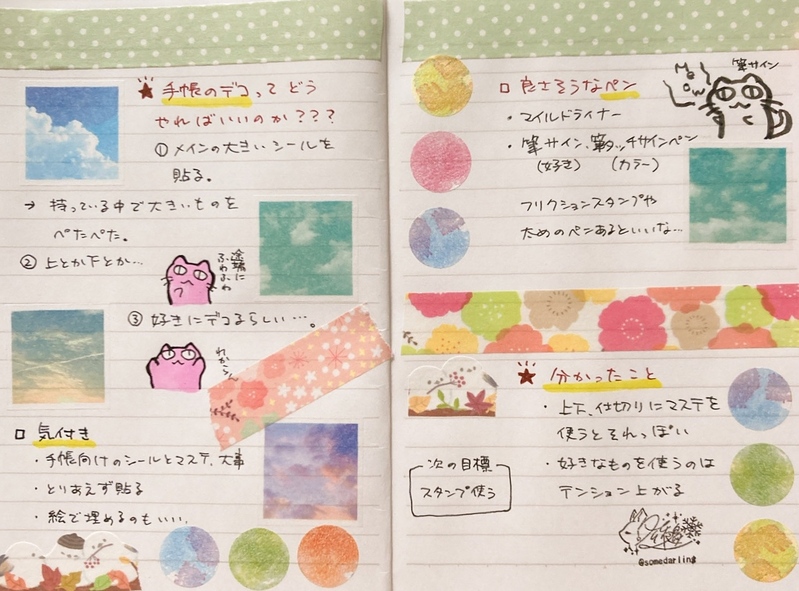 ★ 手帳のデコってどう
やればいいのか???
① メインの大きいシールを
貼る。
→ 持っている中で大きいものを
ぺたぺた。
② 上とか下とか…
途端に
ふわふわ
③ 好きにデコるらしい…。
わからん
□ 気付き
・手帳向けのシールとマステ、大事
・とりあえず貼る
・絵で埋めるのもいい。
□ 良さそうなペン
筆サイン
Meow
・マイルドライナー
・筆サイン、筆タッチサインペン
(好き) (カラー)
フリクションスタンプや
太めのペンあるといいな…
★ 分かったこと
・上下、仕切りにマステを
使うとそれっぽい
・好きなものを使うのは
テンション上がる
次の目標
スタンプ使う
@somedarling